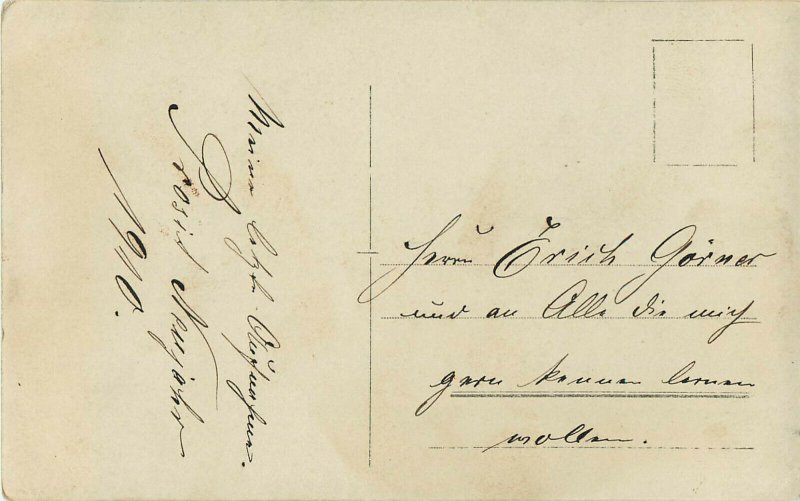 Meine letzte Aufnahme.
Prosit Neujahr
1910.
Herrn Erich Görner
und an Alle die mich
gern kennen lernen
wollen.